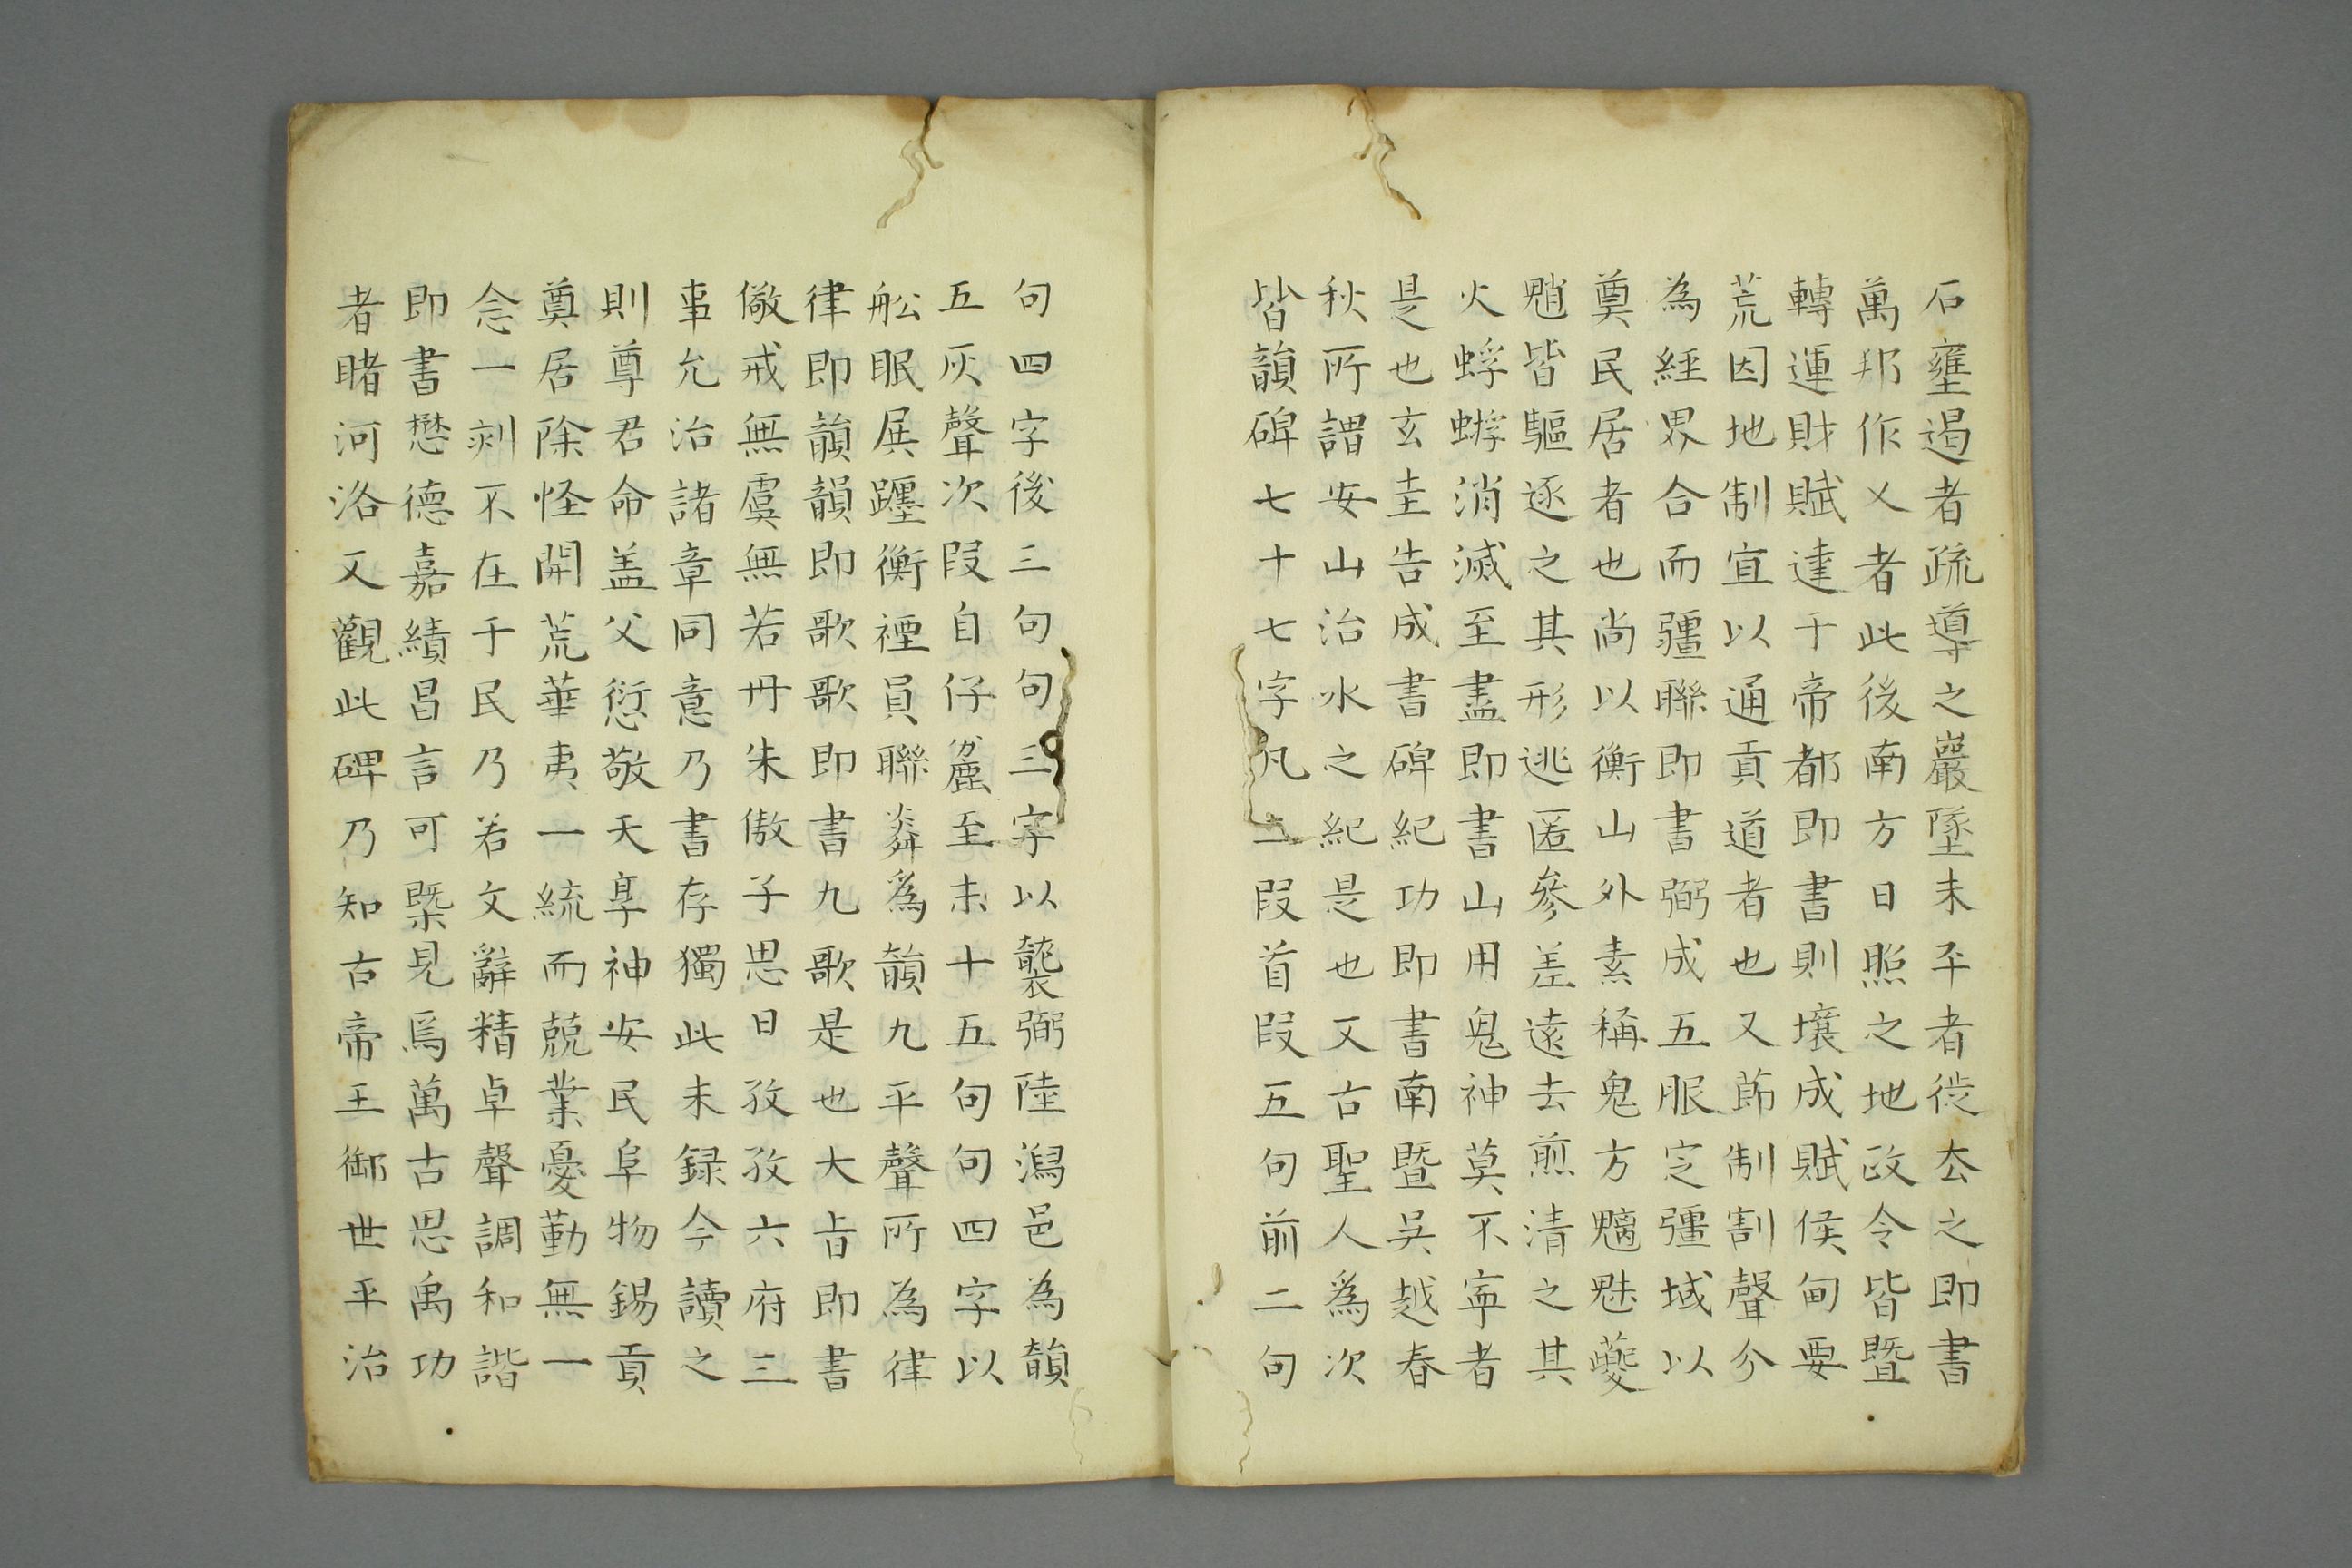 石壅遏者疏導之巖墜未平者徙去之即書
萬邦作乂者此後南方日照之地政令皆暨
轉運財賦達于帝都即書則壤成賦侯甸要
荒因地制宜以通貢道者也又節制割聲分
為経界合而疆聯即書弼成五服定彊域以
奠民居者也尚以衡山外素稱鬼方魑魅夔
魈皆驅逐之其形逃匿參差遠去煎清之其
火蜉蝣消滅至盡即書山用鬼神莫不寧者
是也玄圭告成書碑紀功即書南暨吳越春
秋所謂安山治水之紀是也又古聖人爲次
皆韻碑七十七字凡二段首段五句前二句
句四字後三句句三字以襲弼陸潟邑為韻
五灰聲次段自仔麄至末十五句句四字以
舩眠展躔衡禋員聯粦爲韻九平聲所為律
律即韻韻即歌歌即書九歌是也大㫖即書
儆戒無虞無若丹朱傲子思日孜孜六府三
事允治諸章同意乃書存獨此未録今讀之
則尊君命盖父愆敬天享神安民阜物錫貢
奠居除怪開荒華夷一統而兢業憂勤無一
念一刻不在于民乃若文辭精卓聲調和諧
即書懋德嘉績昌言可槩見焉萬古思禹功
者睹河洛又觀此碑乃知古帝王御世平治